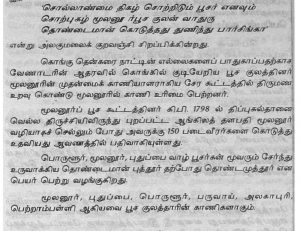 சொல்லாண்மை திகழ் சொற்றிடும் பூசர் எனவும்
சொற்புகழ் மூலனூர் பூச குலன் வாதுரு
தொண்டைமான் கொடுத்தது துணிந்து பார்சிங்கா
என்று அலகுமலைக் குறவஞ்சி சிறப்பிக்கின்றது.
கொங்கு தென்கரை நாட்டின் எல்லைகளைப் பாதுகாப்பதற்காக
வேணாடரின் ஆதரவில் கொங்கில் குடியேறிய பூச குலத்தினர்
மூலனூரின் முதன்மைக் காணியாளராகிய சேர கூட்டத்தில் திருமண
உறவு கொண்டு மூலனூரில் காணி உரிமை பெற்றனர்.
மூலனூர்ப் பூச கூட்டத்தினர் கி.பி. 1798 ல் திப்புசுல்தானை
வெல்ல திருச்சியிலிருந்து புறப்பட்ட ஆங்கிலத் தளபதி மூலனூர்
வழியாகச் செல்லும் போது அவருக்கு 150 படைவீரர்களை கொடுத்து
உதவியது ஆவணத்தில் பதிவாகியுள்ளது.
பொருளூர், மூலனூர், புதுப்பை வாழ் பூசர்கள் மூவரும் சேர்ந்து
உருவாக்கிய தொண்டைமான் புத்தூர் தற்போது தொண்டமுத்தூர் என
பெயர் பெற்று வழங்குகிறது.
மூலனூர், புதுப்பை, பொருளூர், பருவாய், அலகாபுரி,
பெற்றாம்பள்ளி ஆகியவை பூச குலத்தாரின் காணிகளாகும்.